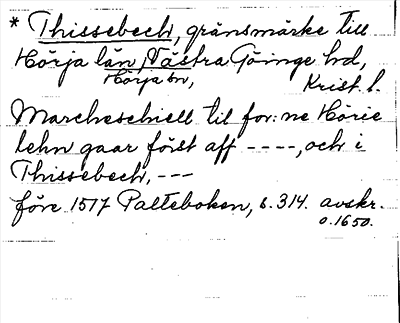 * Thissebech, gränsmärke till
Hörja län, Västra Göinge hd,
Hörja sn, Krist. l.
Marcheschiell til for:ne Hörie
lehn gaar först aff ----, och i
Thissebech, ---
före 1517 Palteboken, s. 314. avskr.
o. 1650.